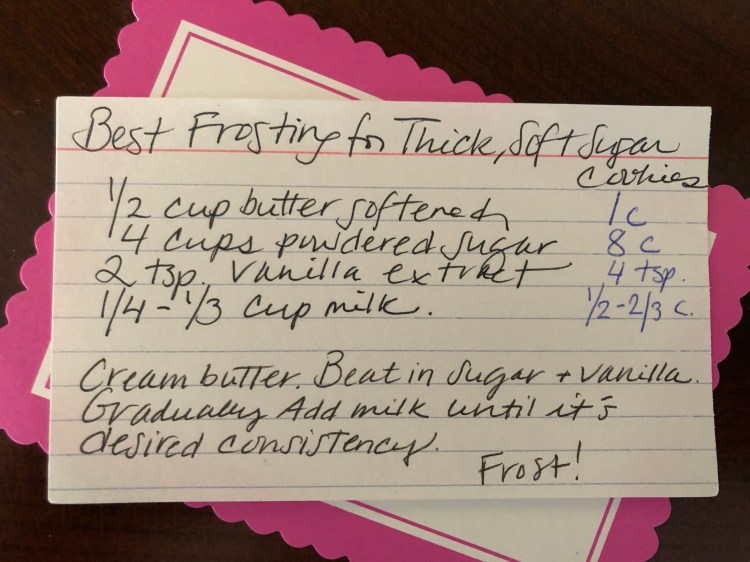 Best Frosting for Thick, Soft Sugar
Cookies
1/2 cup butter softened 1 c
4 cups powdered sugar 8 c
2 tsp. vanilla extract 4 tsp.
1/4 - 1/3 cup milk. 1/2 - 2/3 c.
Cream butter. Beat in sugar + vanilla.
Gradually Add milk until it's
desired consistency.
Frost!